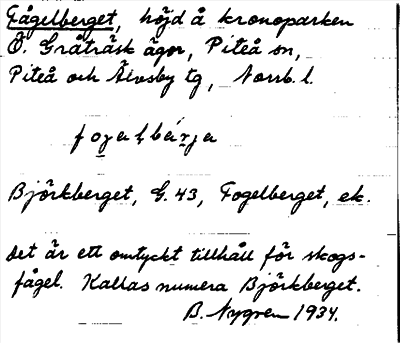 Fågelberget, höjd å kronoparken
Ö. Gråträsk ägor, Piteå sn,
Piteå och Älvsby tg, Norrb. l.
Björkberget, G. 43, Fogelberget, ek.
det är ett omtyckt tillhåll för skogs-
fågel. Kallas numera Björkberget.
B. Nygren 1934.